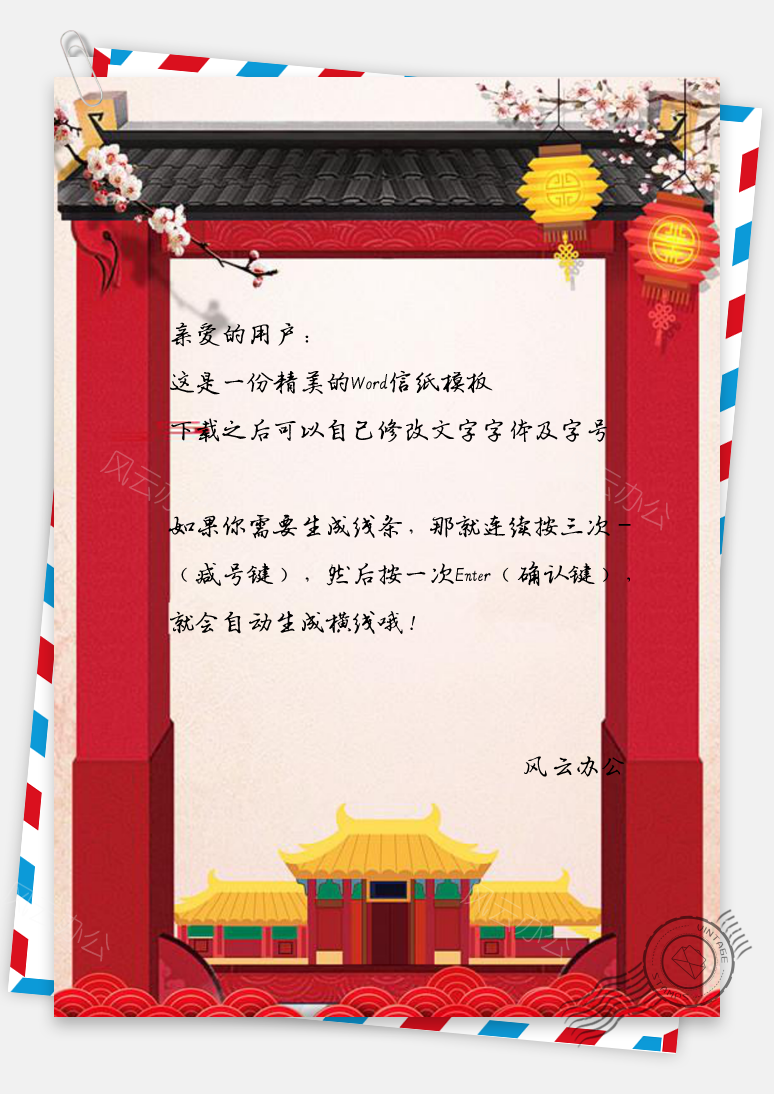 亲爱的用户：
这是一份精美的Word信纸模板
下载之后可以自己修改文字字体及字号
如果你需要生成线条，那就连续按三次-
（减号键），然后按一次Enter（确认键），
就会自动生成横线哦！
风云办公
风云办公
风云办公
风云办公
风云办公
VINTAGE